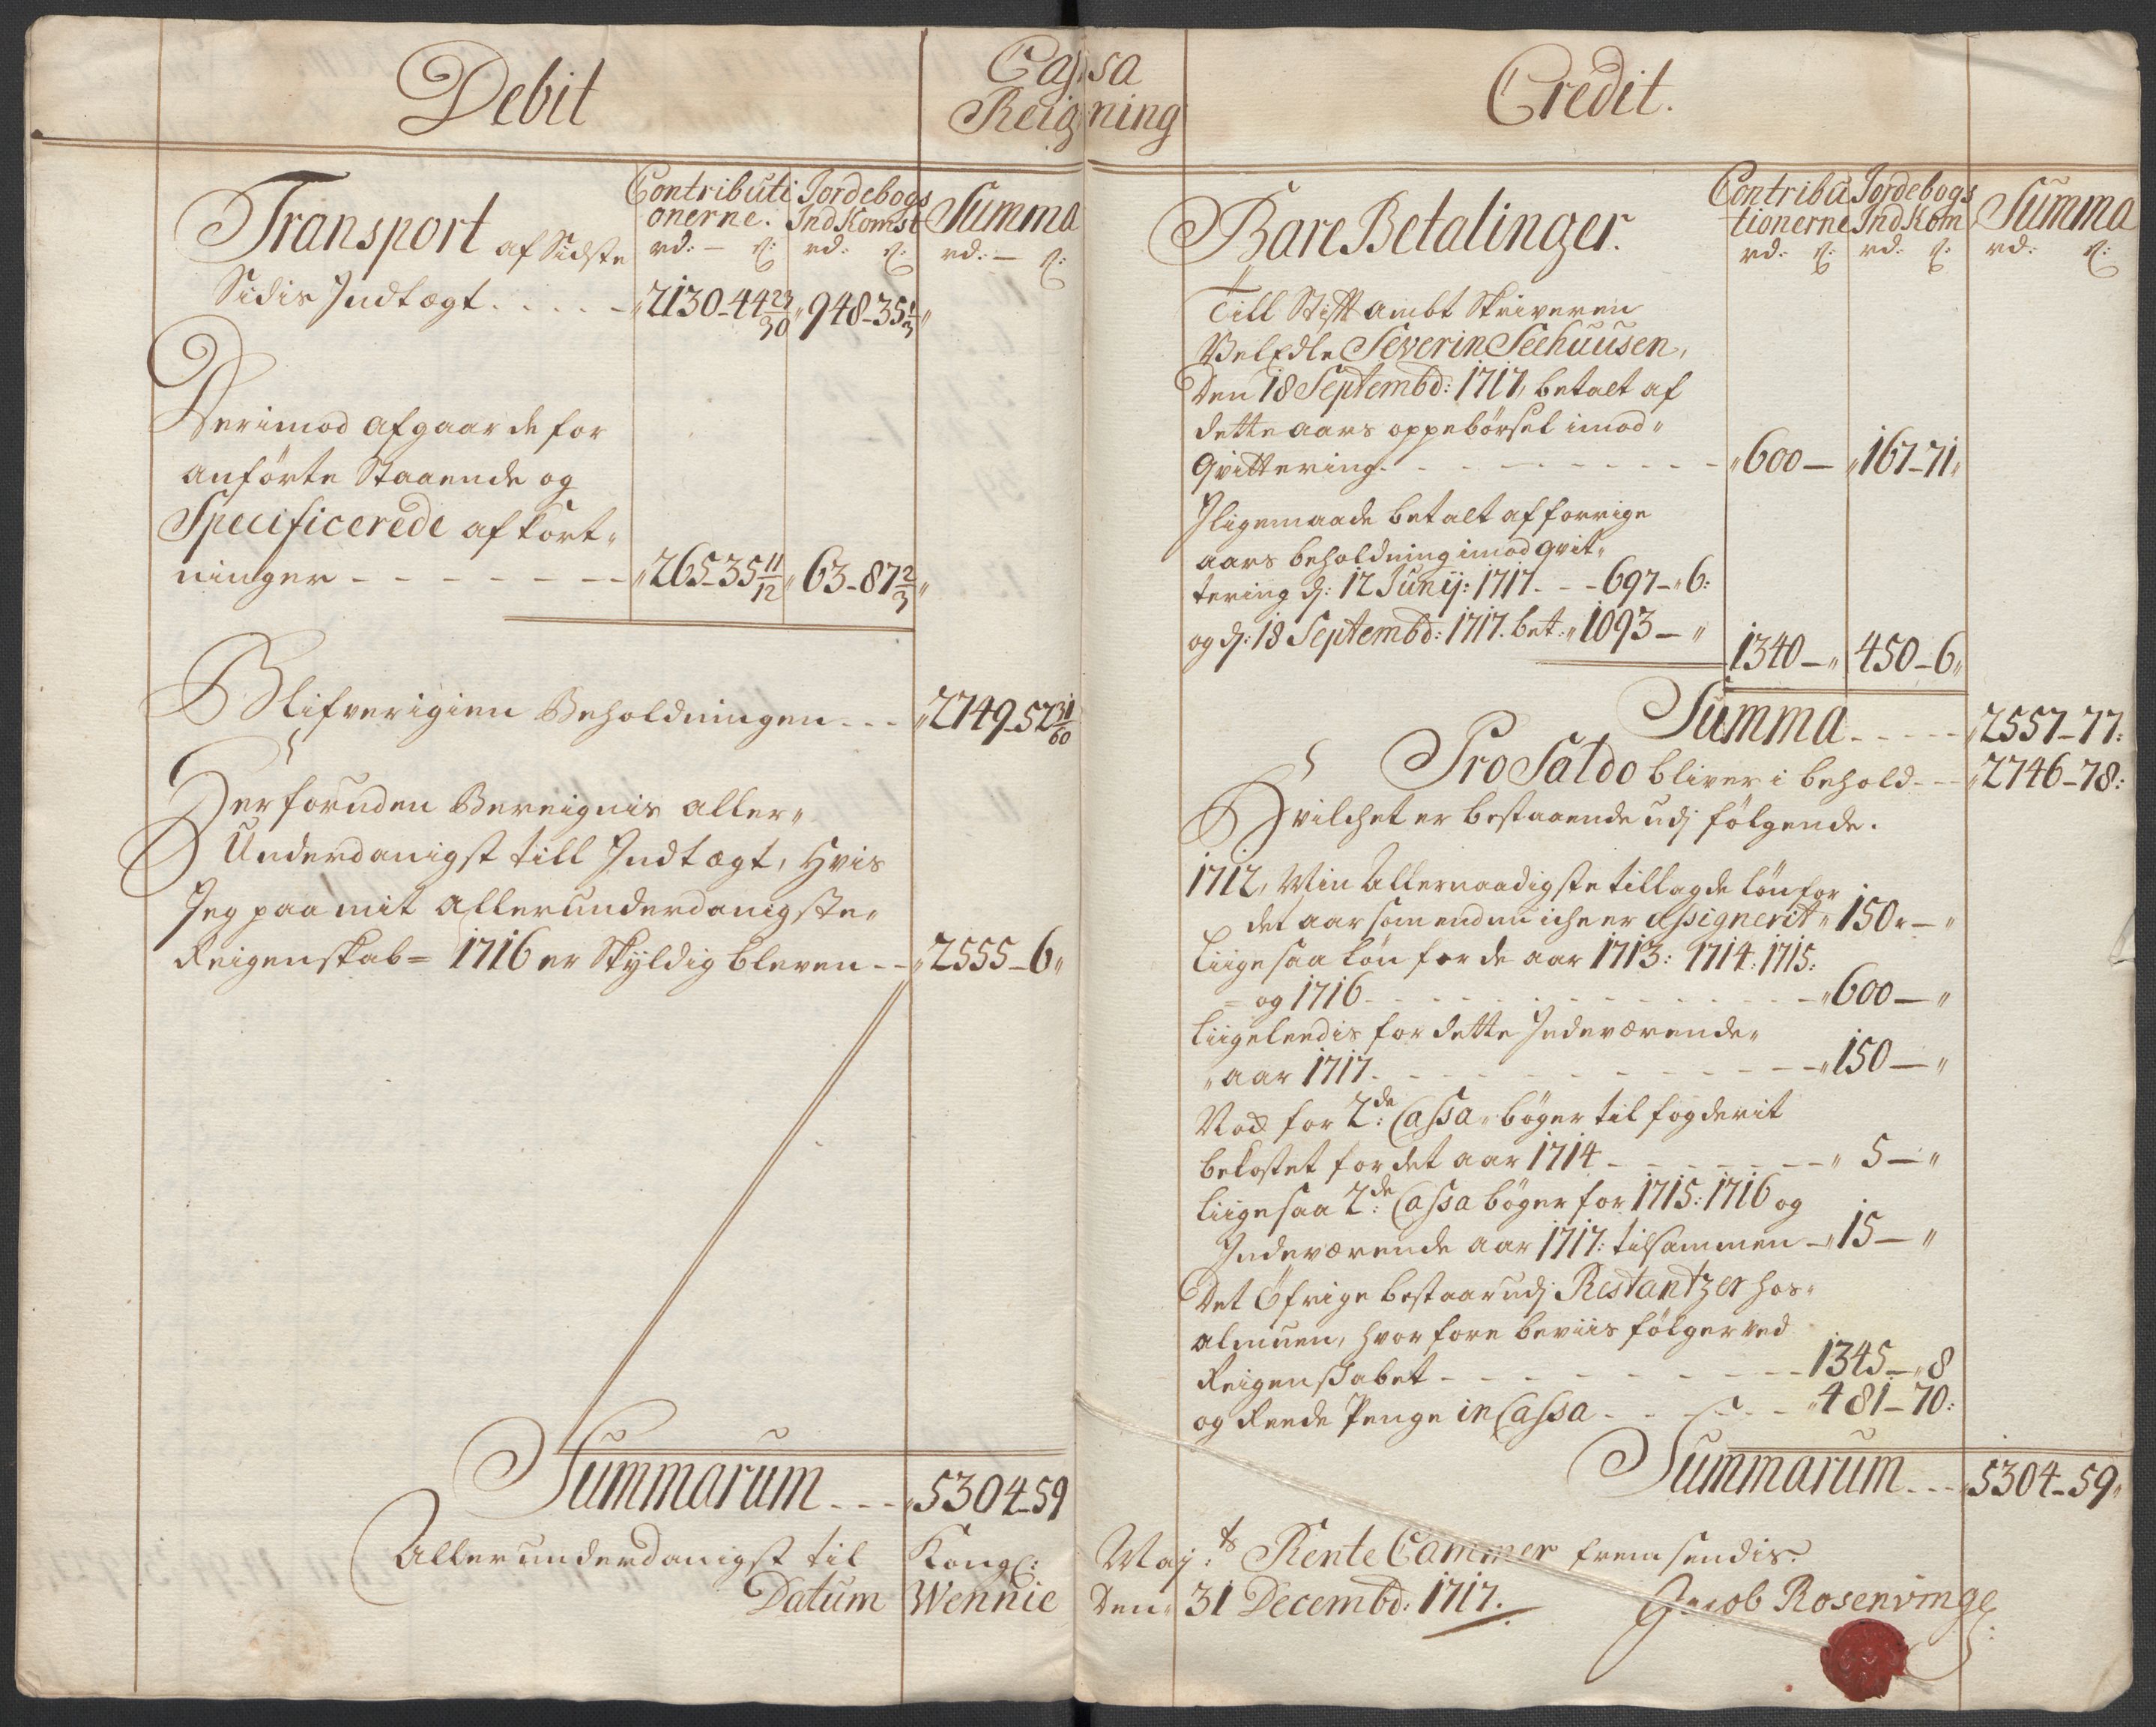 Debit
Cassa
Reigning
Credit.
Contributi
onerne.
Jordebogs
IndKomst
Summa
rd: — ß:
rd: ß:
rd: — ß:
Transport af Sidste
Sidis Indtægt . . . . - „2130-44 23/30 „948-35 1/3„
Derimod afgaar de for
anførte Staaende og
Specificerede afkort„
ninger - - - - - - - „265-35 11/12 „63-87 2/3„
Blifver igien Beholdningen - - - „2749-52 31/60
Her foruden Bereignis aller„
Underdanigst till Indtægt, Hvis
Jeg paa mit allerunderdanigste„
Reigenskab = 1716 er Skyldig bleven - - „2555-6„
Summarum - - - „5304-59
Allerunderdanigst til Kongl:
Datum Wennie
Bare Betalinger.
Contribu
tionerne
Jordebogs
IndKom
Summa
rd: ß:
rd: ß:
rd: ß:
Till Stifftambt Skriveren
VelEdle Severin Seehuusen,
Den 18 Septembd: 1717, betalt af
dette aars oppebørsel imod„
Qvittering - - - - - - - „600 — „167-71„
Iligemaade betalt af forrige
aars beholdning imod qvit„
tering d: 12 Junij: 1717. - - 697-„6:
og d: 18 Septembd: 1717. bet: „1093 — „
1340 — „ 450-6„
Summa - - - - - „2557-77:
Pro Saldo bliver i behold - - - „2746-78:
Hvilchet er bestaaende udj følgende.
1712, Min Allernaadigste tillagde løn for
det aar som endnu iche er assignerit „150 „ — „
Liigesaa løn for de aar 1713: 1714: 1715:
= og 1716 - - - - - - - - - „600 — „
Liigeleedis for dette Indeværende„
„aar 1717 - - - - - - - - - „150 — „
Nock for 2de: Cassa„bøger til fogderit
bekostet for det aar 1714 - - - - - „ 5 — „
Liigesaa 2de: Cassa bøger for 1715: 1716 og
Indeværende aar 1717: tilsammen - „15 — „
Det Øfrige bestaar udj Restantzer hos„
almuen, hvorfore beviis følger ved
Reigenskabet - - - - - - - - 1345-„8
og Reede Penge in Cassa - - - - - „481-70:
Summarum - - - „5304-59„
Maj:ts Rente Cammer fremsendis.
Den„ 31 Decembd: 1717.
Jacob Rosenvinge